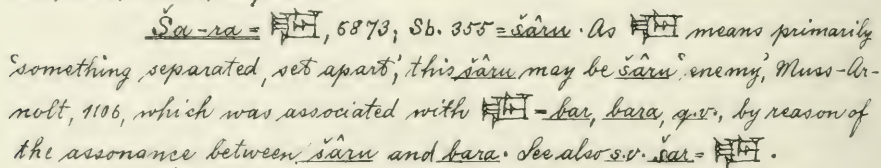 Ša-ra = , 6873; Sb. 355 = šâru. As means primarily
'something separated, set apart,' this šâru may be šâru 'enemy,' Muss-Ar-
nolt, 1106, which was associated with = bar, bara, q.v., by reason of
the assonance between šâru and bara. See also s.v. šar = .